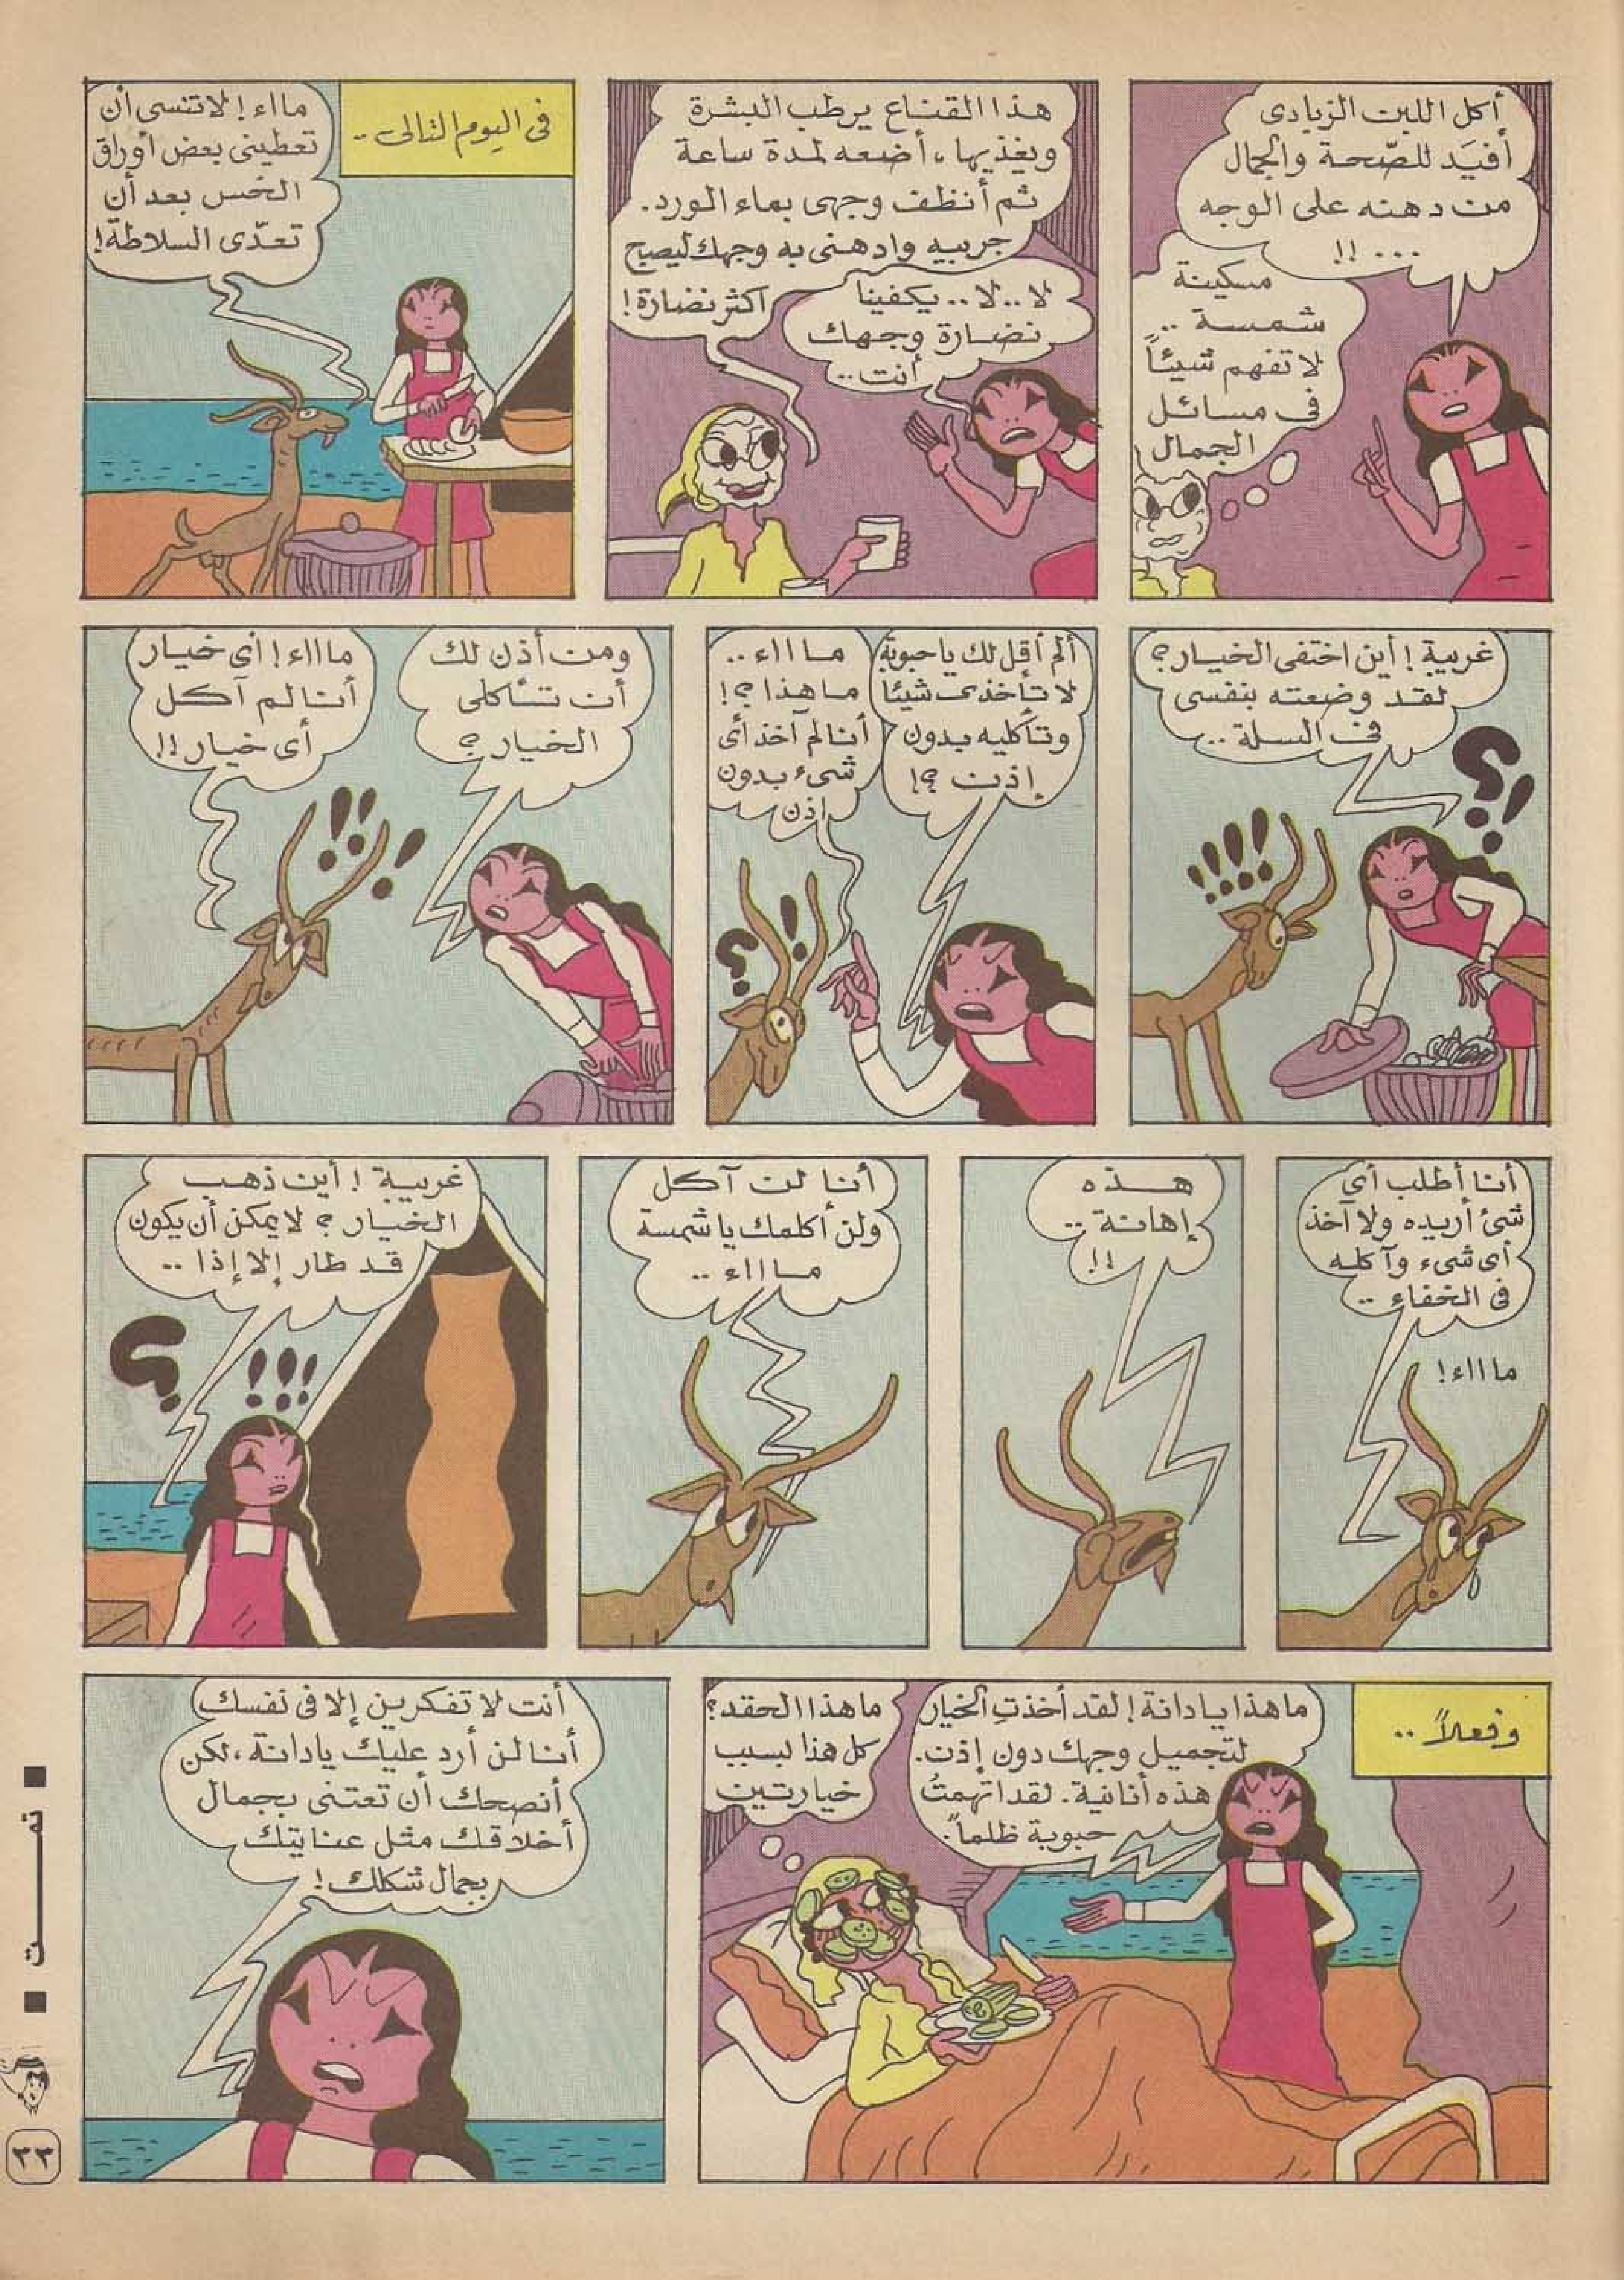 أكل اللبن الزبادى
أفيَد للصّحة والجمال
من دهنه على الوجه
...!!
مسكينة
شمسة ..
لا تفهم شيئاً
فى مسائل
الجمال
هذا القناع يرطب البشرة
ويغذيها، أضعه لمدة ساعة
ثم أنظف وجهى بماء الورد.
جربيه وادهنى به وجهك ليصبح
اكثر نضارة!
لا..لا.. يكفينا
نضارة وجهك
أنت..
فى اليوم التالى ..
مااء! لا تنسى أن
تعطينى بعض أوراق
الخس بعد أن
تعدّى السلاطة!
غريبة! أين اختفى الخيار؟
لقد وضعته بنفسى
فى السلة ..
؟!
!!!!
ألم أقل لك يا حبوبة
لا تأخذى شيئا
وتأكليه بدون
إذن ؟!
ماااء ..
ما هذا ؟!
أنا لم آخذ أى
شىء بدون
إذن
؟ !
ومن أذن لك
أن تأكلى
الخيار؟
ماااء! أى خيار
أنا لم آكل
أى خيار!!
!!!
أنا أطلب أى
شئ أريده ولا آخذ
أى شىء وآكله
فى الخفاء ..
ماااء!
هذه
إهانة ..
!!
أنا لن آكل
ولن أكلمك يا شمسة
ماااء ..
غريبة! أين ذهب
الخيار؟ لا يمكن أن يكون
قد طار إلا إذا ..
!!! ؟
وفعلاً ..
ما هذا يا دانة! لقد أخذتِ الخيار
لتجميل وجهك دون إذن.
هذه أنانية. لقد اتهمتُ
حبوبة ظلماً.
ما هذا الحقد؟
كل هذا بسبب
خيارتين
أنت لا تفكرين إلا فى نفسك
أنا لن أرد عليك يا دانة، لكن
أنصحك أن تعتنى بجمال
أخلاقك مثل عنايتك
بجمال شكلك!
تمت
٢٢